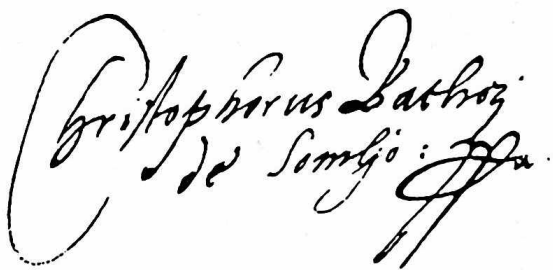 Christophorus Bathorj
de Somljo :